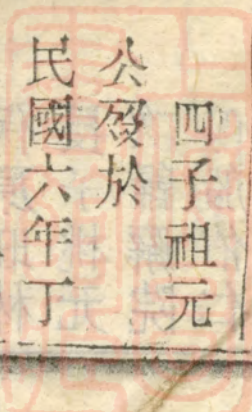 四子祖元
公歿於
民國六年丁